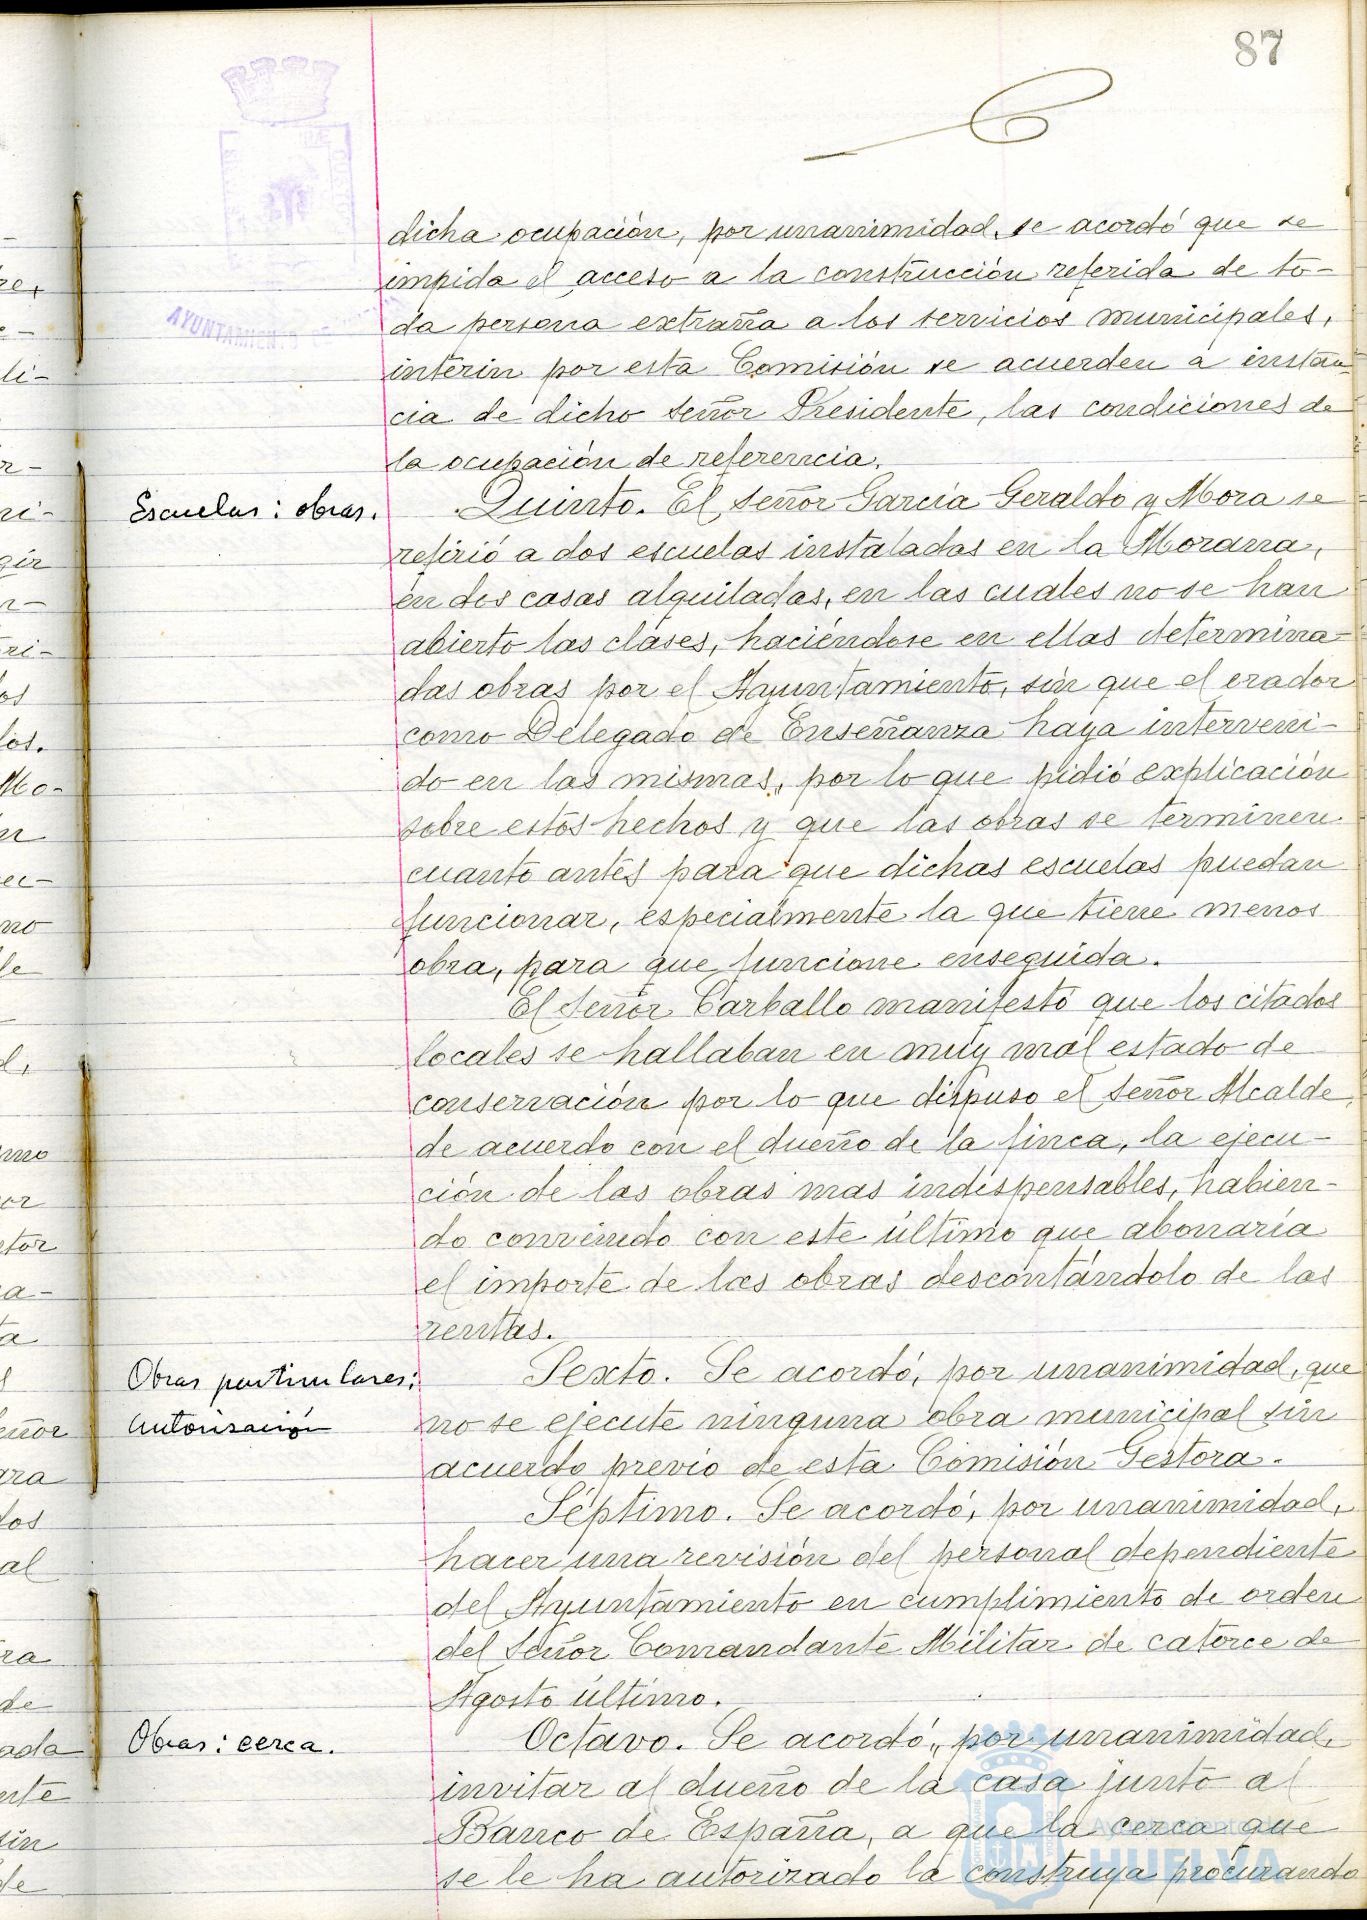 87
dicha ocupación, por unanimidad, se acordó que se
impida el acceso a la construcción referida de to-
da persona extraña a los servicios municipales,
interin por esta Comisión se acuerden a instan-
cia de dicho señor Presidente, las condiciones de
la ocupación de referencia.
Escuelas: obras.
Quinto. El señor García Geraldo y Mora se
refirió a dos escuelas instaladas en la Morana,
en dos casas alquiladas, en las cuales no se han
abierto las clases, haciéndose en ellas determina-
das obras por el Ayuntamiento, sin que el orador
como Delegado de Enseñanza haya interveni-
do en las mismas, por lo que pidió explicación
sobre estos hechos y que las obras se terminen
cuanto antes para que dichas escuelas puedan
funcionar, especialmente la que tiene menos
obra, para que funcione enseguida.
El señor Carballo manifestó que los citados
locales se hallaban en muy mal estado de
conservación por lo que dispuso el señor Alcalde,
de acuerdo con el dueño de la finca, la ejecu-
ción de las obras mas indispensables, habien-
do convenido con este último que abonaría
el importe de las obras descontándolo de las
rentas.
Obras particulares:
autorización
Sexto. Se acordó, por unanimidad, que
no se ejecute ninguna obra municipal sin
acuerdo previo de esta Comisión Gestora.
Séptimo. Se acordó, por unanimidad,
hacer una revisión del personal dependiente
del Ayuntamiento en cumplimiento de orden
del señor Comandante Militar de catorce de
Agosto último.
Obras: cerca.
Octavo. Se acordó, por unanimidad,
invitar al dueño de la casa junto al
Banco de España, a que la cerca que
se le ha autorizado la construya procurando
AYUNTAMIENTO DE
Ayuntamiento de
HUELVA